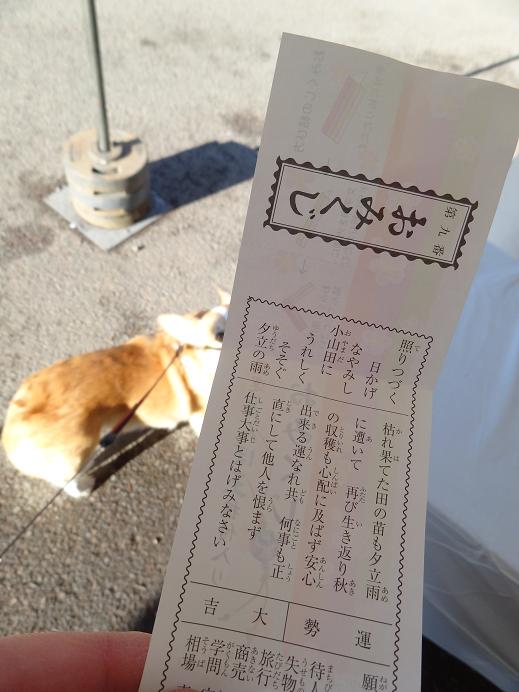 第九番
おみくじ
照りつづく
日かげ
なやみし
小山田に
うれしく
そそぐ
夕立の雨
枯れ果てた田の苗も夕立雨
に遭いて 再び生き返り秋
の収穫も心配に及ばず安心
出来る運なれ共 何事も正
直にして他人を恨まず
仕事大事とはげみなさい
運勢
大吉
願
待人
失物
旅行
商売
学問
相場